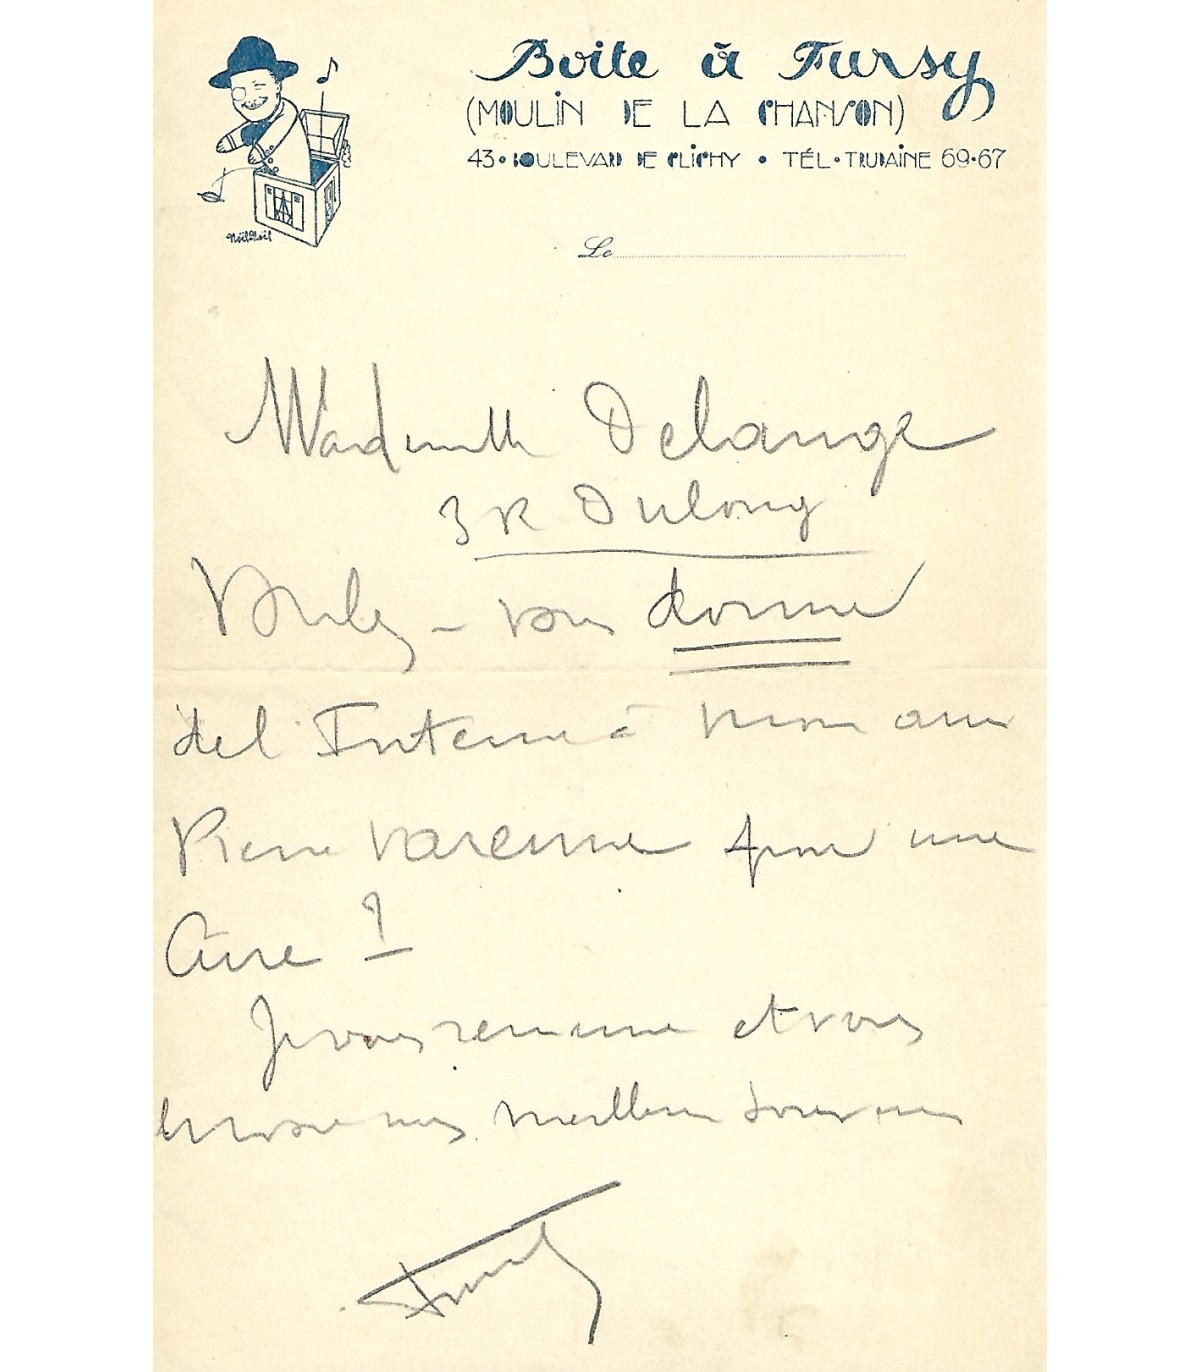 Boite à Fursy
(MOULIN DE LA CHANSON)
43 • BOULEVARD DE CLICHY • TÉL • TRUDAINE 69•67
Noël Noël
Le
Mademoiselle Delange
3 R Dulong
Voulez-vous donner
del Intérim à mon ami
Pierre Varenne pour une
?
Je vous remercie et vous
envoie mes meilleurs souvenirs
Fursy